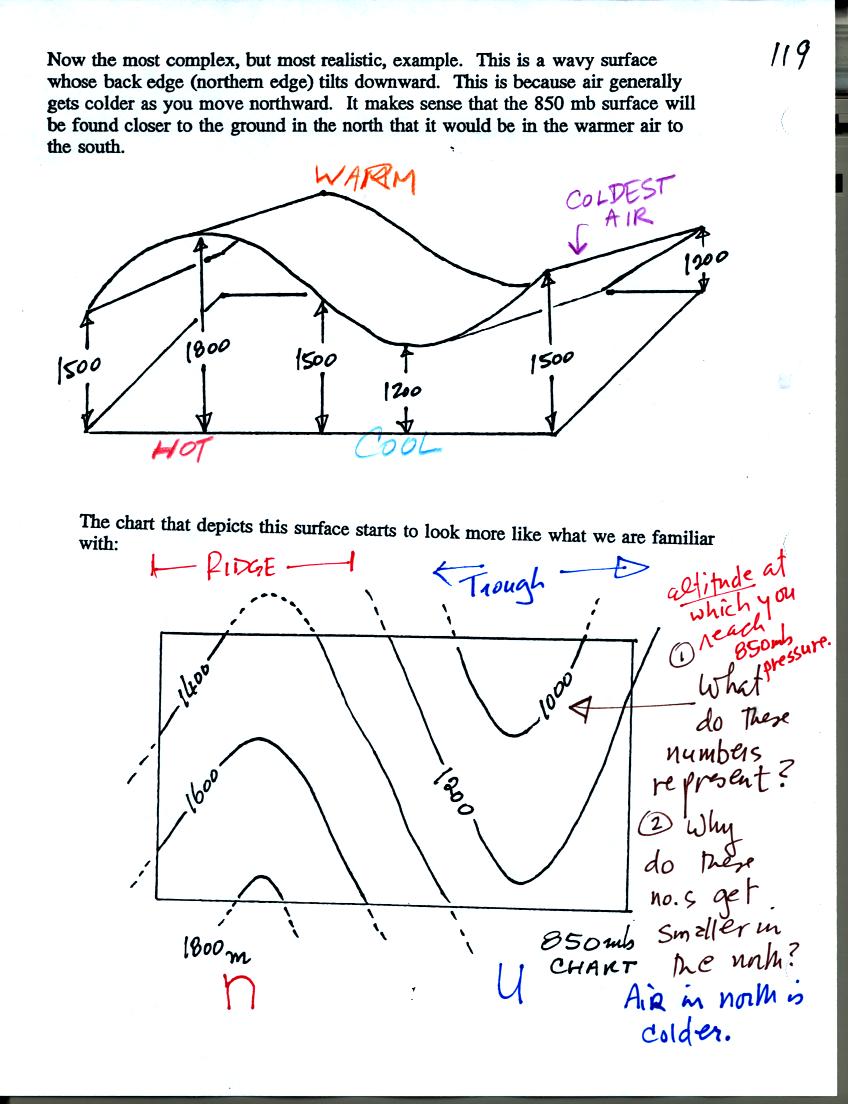 119
Now the most complex, but most realistic, example. This is a wavy surface
whose back edge (northern edge) tilts downward. This is because air generally
gets colder as you move northward. It makes sense that the 850 mb surface will
be found closer to the ground in the north that it would be in the warmer air to
the south.
WARM
COLDEST
AIR
1200
1500
1800
1500
1200
1500
HOT
COOL
The chart that depicts this surface starts to look more like what we are familiar
with:
RIDGE
Trough
altitude at
which you
reach
850mb
pressure.
①
What
do these
numbers
represent?
② Why
do these
no.s get
smaller in
the north?
Air in north is
colder.
1400
1600
1800m
1200
1000
850mb
CHART
n
U